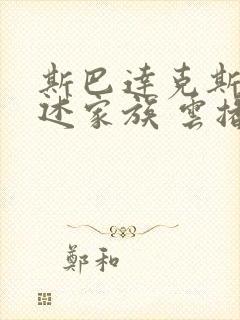 斯巴達克斯
述家族 雲指
鄭和